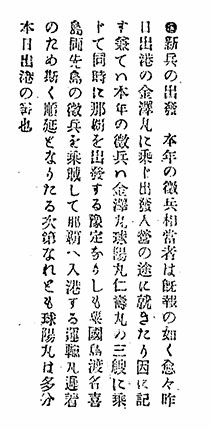 ◉新兵の出發　本年の徴兵相當者は既報の如く愈々昨
日出港の金澤丸に乘り出發入營の途に就きたり因に記
す兼ては本年の徴兵は金澤丸球陽丸仁壽丸の三艘に乘
りて同時に那覇を出發する豫定なりしも粟國島渡名喜
島両先島の徴兵を乘載して那覇へ入港する運輸丸遲着
のため斯く順延となりたる次第なれとも球陽丸は多分
本日出港の筈也